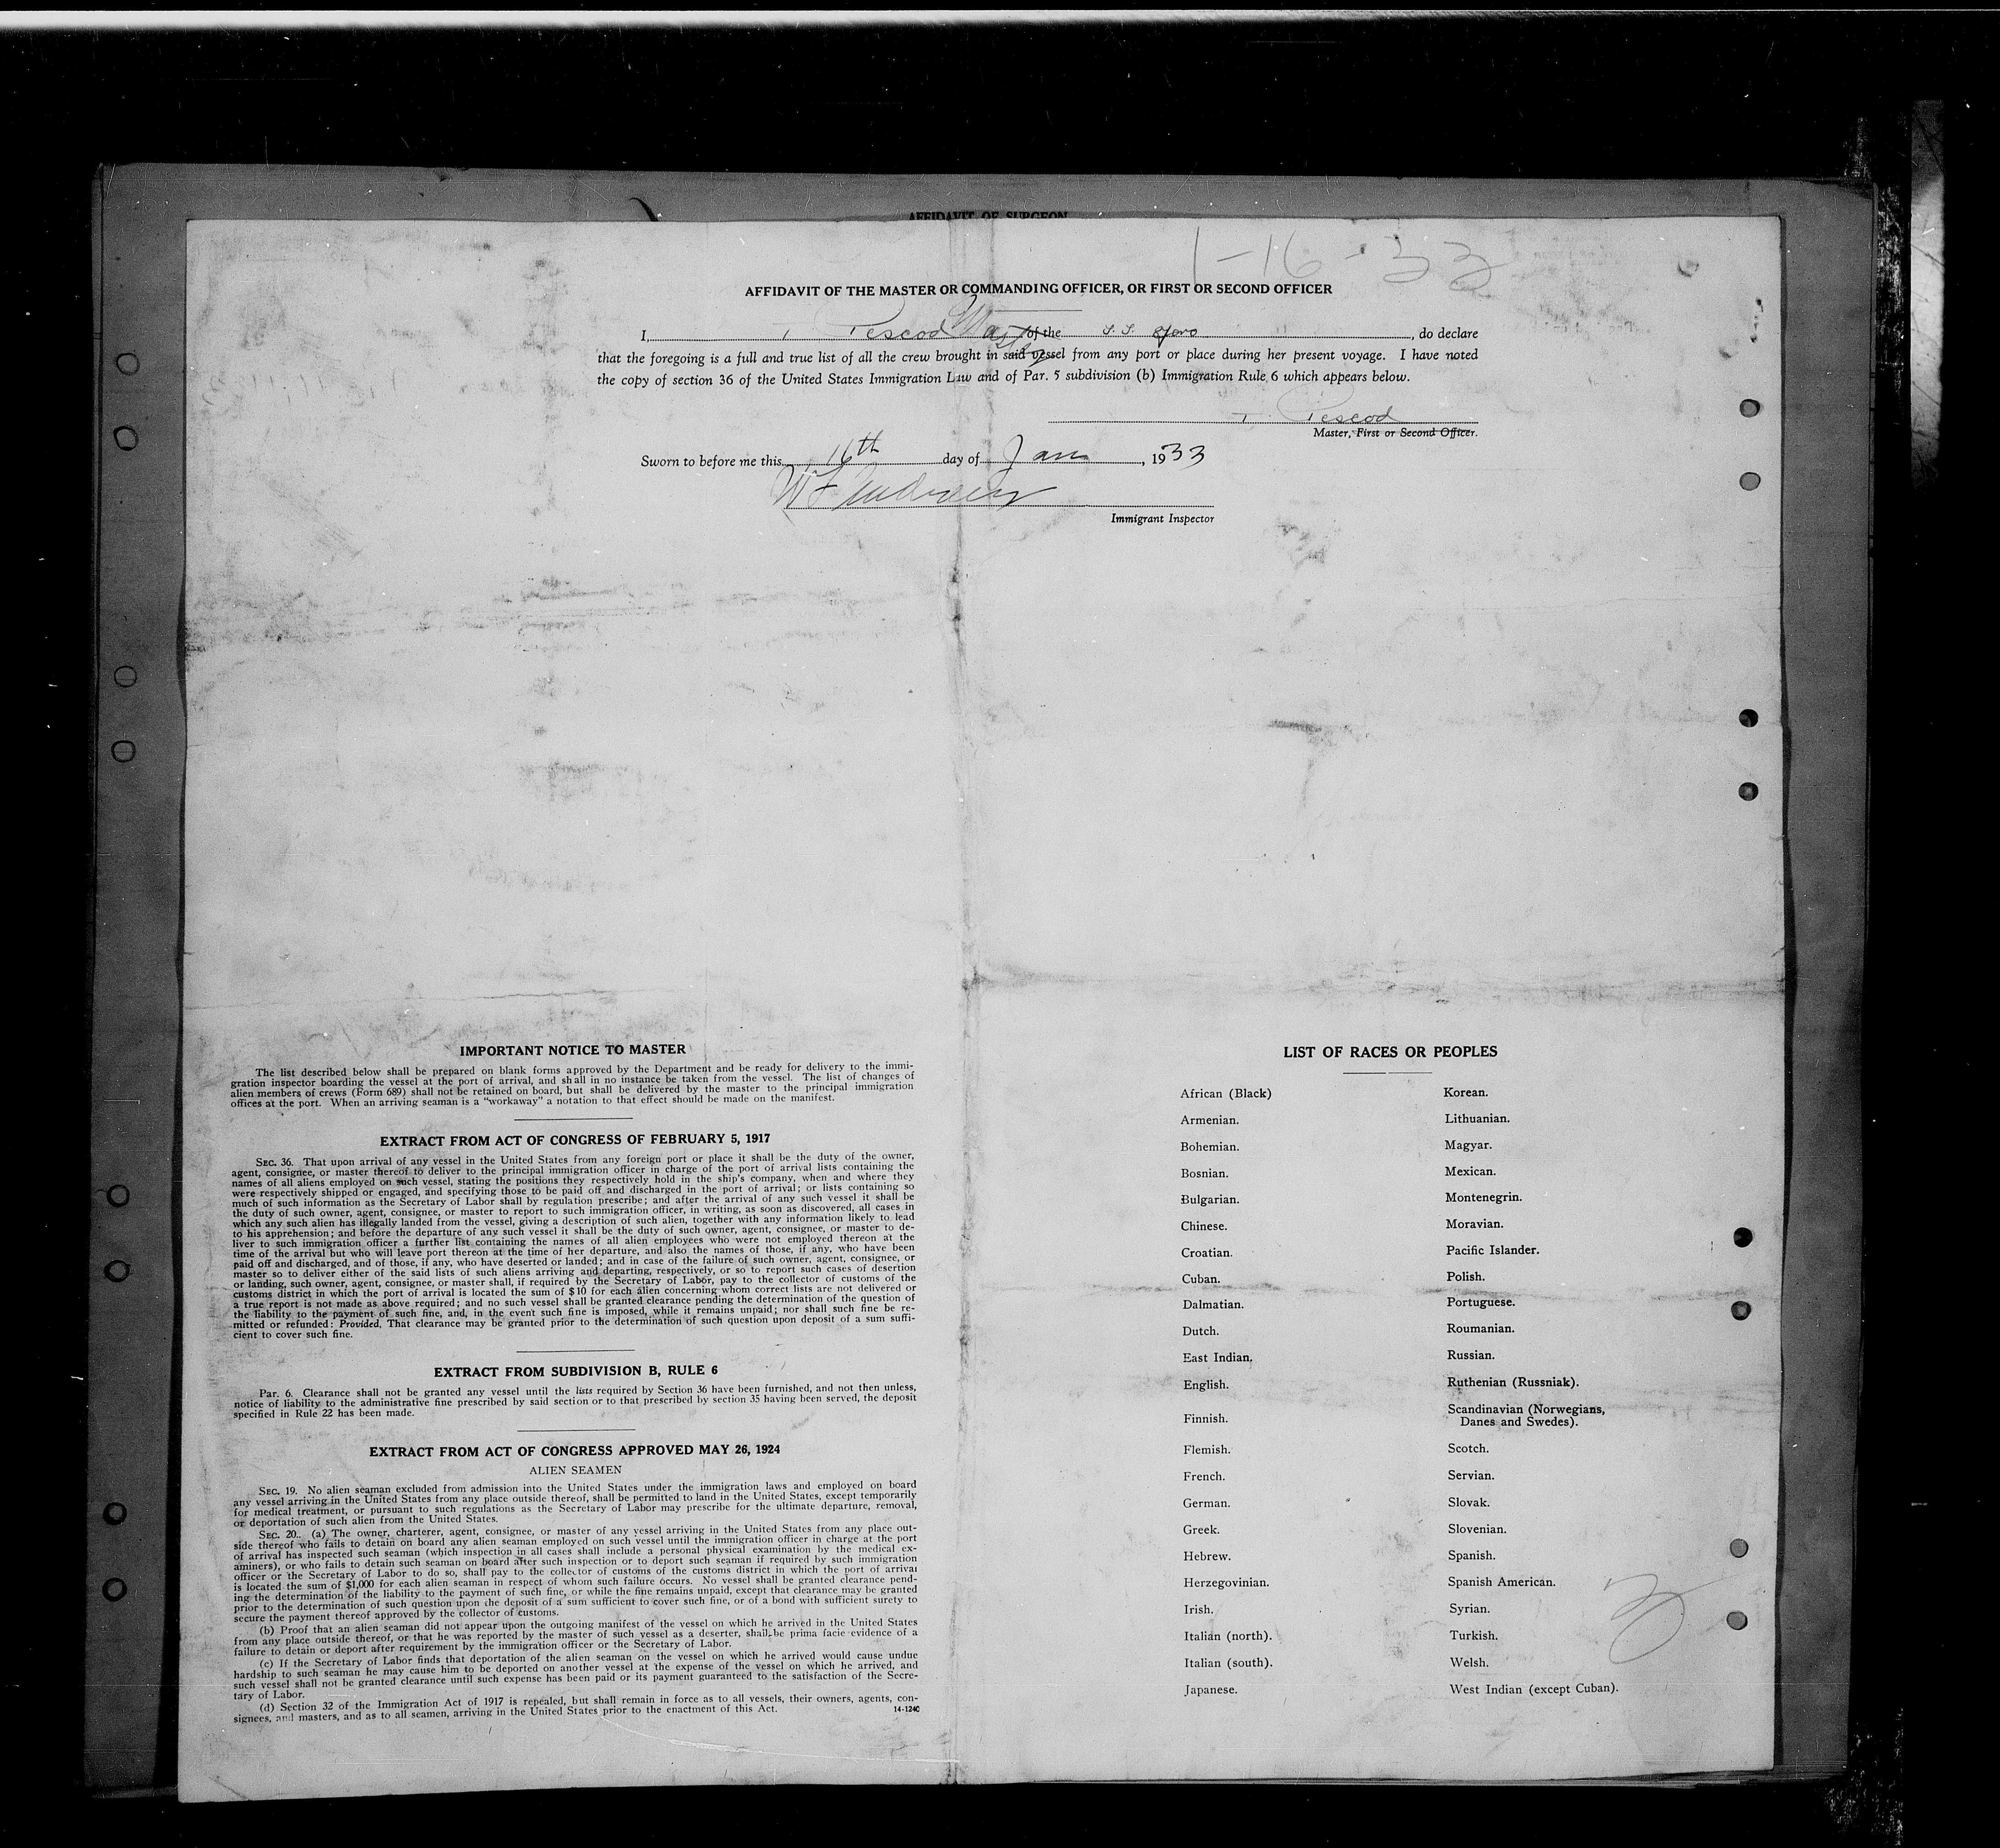 AFFIDAVIT OF SURGEON
1-16-33
AFFIDAVIT OF THE MASTER OR COMMANDING OFFICER, OR FIRST OR SECOND OFFICER
I, Pescod Master of the S.S. , do declare
that the foregoing is a full and true list of all the crew brought in said vessel from any port or place during her present voyage. I have noted
the copy of section 36 of the United States Immigration Law and of Par. 5 subdivision (b) Immigration Rule 6 which appears below.
Pescod
Master, First or Second Officer.
Sworn to before me this 16th day of Jan , 1933
Immigrant Inspector
IMPORTANT NOTICE TO MASTER
The list described below shall be prepared on blank forms approved by the Department and be ready for delivery to the immi-
gration inspector boarding the vessel at the port of arrival, and shall in no instance be taken from the vessel. The list of changes of
alien members of crews (Form 689) shall not be retained on board, but shall be delivered by the master to the principal immigration
offices at the port. When an arriving seaman is a "workaway" a notation to that effect should be made on the manifest.
EXTRACT FROM ACT OF CONGRESS OF FEBRUARY 5, 1917
SEC. 36. That upon arrival of any vessel in the United States from any foreign port or place it shall be the duty of the owner,
agent, consignee, or master thereof to deliver to the principal immigration officer in charge of the port of arrival lists containing the
names of all aliens employed on such vessel, stating the positions they respectively hold in the ship's company, when and where they
were respectively shipped or engaged, and specifying those to be paid off and discharged in the port of arrival; or lists containing so
much of such information as the Secretary of Labor shall by regulation prescribe; and after the arrival of any such vessel it shall be
the duty of such owner, agent, consignee, or master to report to such immigration officer, in writing, as soon as discovered, all cases in
which any such alien has illegally landed from the vessel, giving a description of such alien, together with any information likely to lead
to his apprehension; and before the departure of any such vessel it shall be the duty of such owner, agent, consignee, or master to de-
liver to such immigration officer a further list containing the names of all alien employees who were not employed thereon at the
time of the arrival but who will leave port thereon at the time of her departure, and also the names of those, if any, who have been
paid off and discharged, and of those, if any, who have deserted or landed; and in case of the failure of such owner, agent, consignee, or
master so to deliver either of the said lists of such aliens arriving and departing, respectively, or so to report such cases of desertion
or landing, such owner, agent, consignee, or master shall, if required by the Secretary of Labor, pay to the collector of customs of the
customs district in which the port of arrival is located the sum of $10 for each alien concerning whom correct lists are not delivered or
a true report is not made as above required; and no such vessel shall be granted clearance pending the determination of the question of
the liability to the payment of such fine, and, in the event such fine is imposed, while it remains unpaid; nor shall such fine be re-
mitted or refunded: Provided, That clearance may be granted prior to the determination of such question upon deposit of a sum suffi-
cient to cover such fine.
EXTRACT FROM SUBDIVISION B, RULE 6
Par. 6. Clearance shall not be granted any vessel until the lists required by Section 36 have been furnished, and not then unless,
notice of liability to the administrative fine prescribed by said section or to that prescribed by section 35 having been served, the deposit
specified in Rule 22 has been made.
EXTRACT FROM ACT OF CONGRESS APPROVED MAY 26, 1924
ALIEN SEAMEN
SEC. 19. No alien seaman excluded from admission into the United States under the immigration laws and employed on board
any vessel arriving in the United States from any place outside thereof, shall be permitted to land in the United States, except temporarily
for medical treatment, or pursuant to such regulations as the Secretary of Labor may prescribe for the ultimate departure, removal,
or deportation of such alien from the United States.
SEC. 20. (a) The owner, charterer, agent, consignee, or master of any vessel arriving in the United States from any place out-
side thereof who fails to detain on board any alien seaman employed on such vessel until the immigration officer in charge at the port
of arrival has inspected such seaman (which inspection in all cases shall include a personal physical examination by the medical ex-
aminers), or who fails to detain such seaman on board after such inspection or to deport such seaman if required by such immigration
officer or the Secretary of Labor to do so, shall pay to the collector of customs of the customs district in which the port of arrival
is located the sum of $1,000 for each alien seaman in respect of whom such failure occurs. No vessel shall be granted clearance pend-
ing the determination of the liability to the payment of such fine, or while the fine remains unpaid, except that clearance may be granted
prior to the determination of such question upon the deposit of a sum sufficient to cover such fine, or of a bond with sufficient surety to
secure the payment thereof approved by the collector of customs.
(b) Proof that an alien seaman did not appear upon the outgoing manifest of the vessel on which he arrived in the United States
from any place outside thereof, or that he was reported by the master of such vessel as a deserter, shall be prima facie evidence of a
failure to detain or deport after requirement by the immigration officer or the Secretary of Labor.
(c) If the Secretary of Labor finds that deportation of the alien seaman on the vessel on which he arrived would cause undue
hardship to such seaman he may cause him to be deported on another vessel at the expense of the vessel on which he arrived, and
such vessel shall not be granted clearance until such expense has been paid or its payment guaranteed to the satisfaction of the Secre-
tary of Labor.
(d) Section 32 of the Immigration Act of 1917 is repealed, but shall remain in force as to all vessels, their owners, agents, con-
signees, and masters, and as to all seamen, arriving in the United States prior to the enactment of this Act. 14-1240
LIST OF RACES OR PEOPLES
African (Black)
Armenian.
Bohemian.
Bosnian.
Bulgarian.
Chinese.
Croatian.
Cuban.
Dalmatian.
Dutch.
East Indian.
English.
Finnish.
Flemish.
French.
German.
Greek.
Hebrew.
Herzegovinian.
Irish.
Italian (north).
Italian (south).
Japanese.
Korean.
Lithuanian.
Magyar.
Mexican.
Montenegrin.
Moravian.
Pacific Islander.
Polish.
Portuguese.
Roumanian.
Russian.
Ruthenian (Russniak).
Scandinavian (Norwegians,
Danes and Swedes).
Scotch.
Servian.
Slovak.
Slovenian.
Spanish.
Spanish American.
Syrian.
Turkish.
Welsh.
West Indian (except Cuban).
3